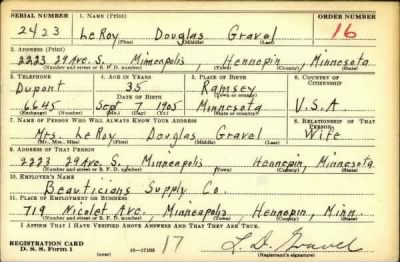 SERIAL NUMBER 1. NAME (Print) ORDER NUMBER
2423 LeRoy Douglas Gravel 16
(First) (Middle) (Last)
2. ADDRESS (Print)
2223 29 Ave. S. Minneapolis, Hennepin, Minnesota
(Number and street or R. F. D. number) (Town) (County) (State)
3. TELEPHONE 4. AGE IN YEARS 5. PLACE OF BIRTH 6. COUNTRY OF CITIZENSHIP
Dupont 35 Ramsey
DATE OF BIRTH (Town or county)
6645 Sept 7 1905 Minnesota U.S.A
(Exchange) (Number) (Mo.) (Day) (Yr.) (State or country)
7. NAME OF PERSON WHO WILL ALWAYS KNOW YOUR ADDRESS 8. RELATIONSHIP OF THAT PERSON
Mrs. LeRoy Douglas Gravel Wife
(Mr., Mrs., Miss) (First) (Middle) (Last)
9. ADDRESS OF THAT PERSON
2223 29 Ave. S. Minneapolis Hennepin, Minnesota
(Number and street or R. F. D. number) (Town) (County) (State)
10. EMPLOYER'S NAME
Beauticians Supply Co.
11. PLACE OF EMPLOYMENT OR BUSINESS
719 Nicolet Ave, Minneapolis, Hennepin, Minn.
(Number and street or R. F. D. number) (Town) (County) (State)
I AFFIRM THAT I HAVE VERIFIED ABOVE ANSWERS AND THAT THEY ARE TRUE.
REGISTRATION CARD
D. S. S. Form 1 17 L. D. Gravel
(Registrant's signature)